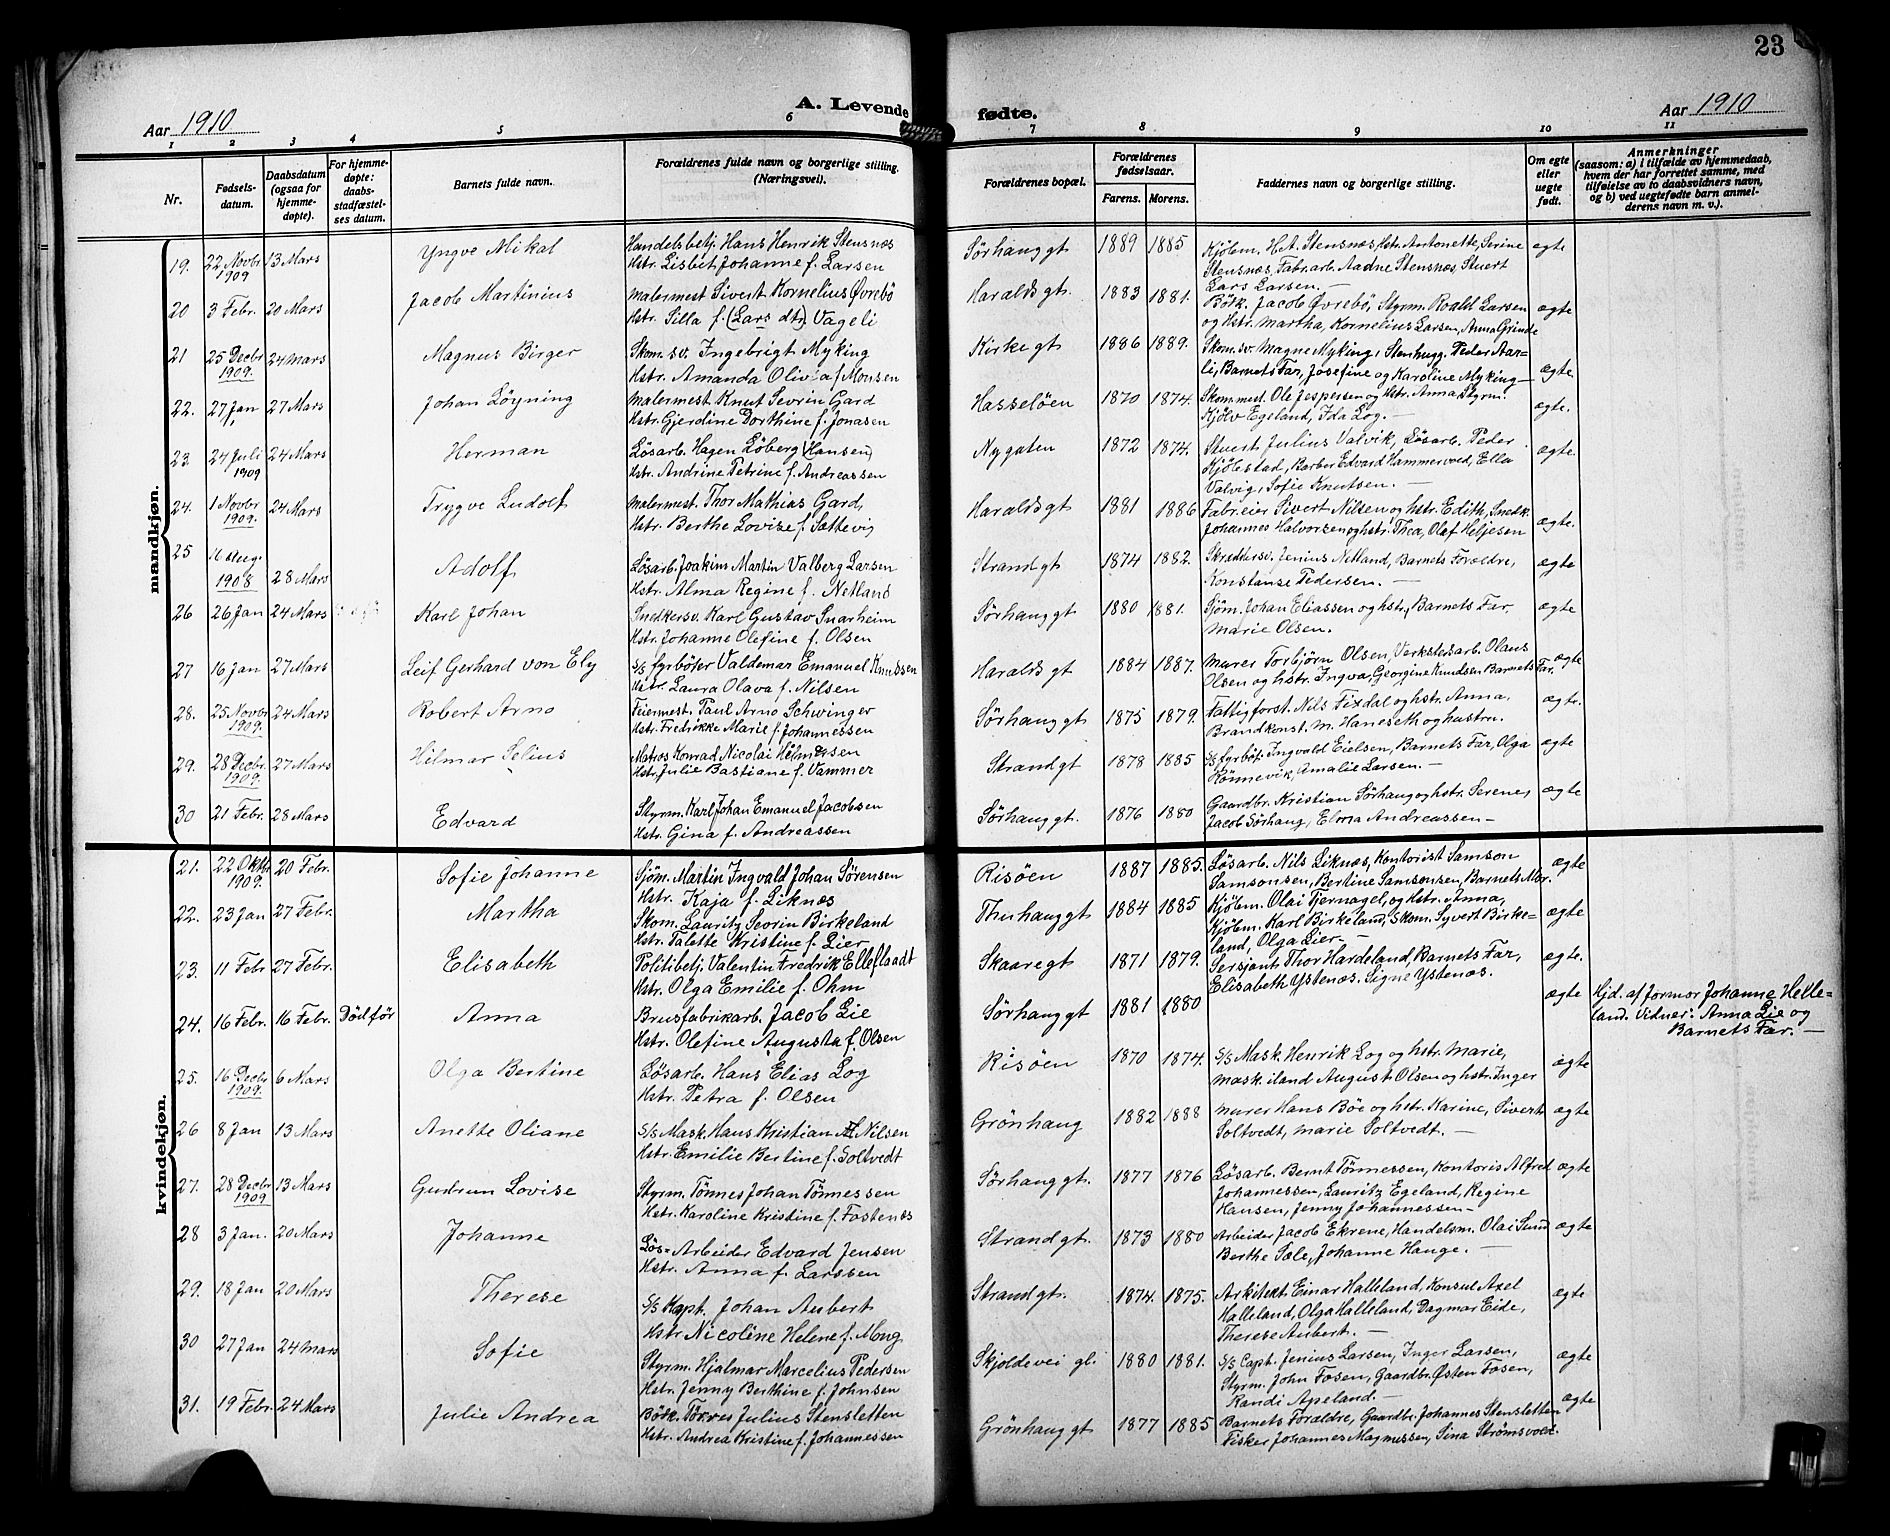 23
A. Levende fødte.
Aar 1910
Aar 1910
1 2 3 4 5 6 7 8 9 10 11
Nr.
Fødsels-
datum.
Daabsdatum
(ogsaa for
hjemme-
døpte).
For hjemme-
døpte:
daabs-
stadfæstel-
ses datum.
Barnets fulde navn.
Forældrenes fulde navn og borgerlige stilling.
(Næringsvei).
Forældrenes bopæl.
Forældrenes
fødselsaar.
Farens. Morens.
Faddernes navn og borgerlige stilling.
Om egte
eller
uegte
født.
Anmerkninger
(saasom: a) i tilfælde av hjemmedaab,
hvem der har forrettet samme, med
tilføielse av to daabsvidners navn,
og b) ved uegtefødte barn anmel-
derens navn m. v.).
mandkjøn.
19. 22 Novbr 1909 13 Mars Yngve Mikal
Handelsbetj. Hans Henrik Stensnæs
Hstr. Lisbet Johanne f. Larsen
Sørhauggt 1889 1885
Kjøbm. H.A. Stensnæs, Hstr. Antonette, Serine
Stensnæs, Fabr.arb. Aadne Stensnæs, Stuert
Lars Larsen. —
ægte
20 3 Febr. 20 Mars Jacob Martinius
Malermest. Sivert Kornelius Øvrebö
Hstr. Silla f. (Lars dtr) Vageli
Haraldsgt. 1883 1881.
Bötk. Jacob Øvrebö, Styrm. Roald Larsen
og Hstr. Martha, Kornelius Larsen, Anna Grinde
ægte
21 25 Decbr 1909. 24 Mars Magnus Birger
Skom.sv. Ingebrigt Myking
Hstr. Amanda Olivia f. Monsen
Kirkegt 1886 1889.
Skom.sv. Magne Myking, Stenhugg. Peder Aar-
li, Barnets Far, Josefine og Karoline Myking —
ægte
22. 27 Jan 27 Mars Johan Löyning
Malermest Knut Sevrin Gard
Hstr. Gjerdine Dorthine f. Jonasen
Hasselöen 1870 1874.
Skom.mest. Ole Jespersen og Hstr. Anna, Styrm.
Kjölv Egeland, Ida Log. —
ægte.
23. 24 Juli 1909 24 Mars Herman
Løsarb. Hagen Löberg (Hansen)
Hstr. Andrine Petrine f. Andreassen
Nygaten 1872 1874.
Stuert Julius Valvik, Løsarb. Peder
Kjöbstad, Barber Edvard Hammervold, Ella
Valvig, Sofie Knutsen. —
ægte.
24. 1 Novbr 1909. 24 Mars Trygve Ludolf
Malermest. Thor Mathias Gard,
Hstr. Berthe Lovise f. Sættevig
Haraldsgt 1881 1886
Fabrieier Sivert Nilsen og hstr. Edith, Snedk.
Johannes Halvorsen og hstr. Thea, Olaf Heljesen
ægte.
25 16 Aug. 1908 28 Mars Adolf
Løsarb. Joakim Martin Valberg Larsen
Hstr. Alma Regine f. Netland
Strandgt 1874 1882.
Skræddersv. Jenius Netland, Barnets Forældre,
Konstanse Pedersen. —
ægte
26 26 Jan 24 Mars Karl Johan
Snedkersv. Karl Gustav Snarheim
Hstr. Johanne Olefine f. Olsen
Sörhauggt 1880 1881.
Sjöm. Johan Eliassen og hstr, Barnets Far,
Marie Olsen.
ægte
27 16 Jan 27 Mars Leif Gerhard von Ely
S/s fyrböter Valdemar Emanuel Knudsen
Hstr. Laura Olava f. Nilsen
Haraldsgt 1884 1887.
Murer Torbjörn Olsen, Verkstedsarb. Olaus
Olsen og hstr. Ingva, Georgine Knudsen Barnets Far.
ægte
28. 25 Novbr 1909. 24 Mars Robert Arno
Feiermest. Paul Arno Schwinger
Hstr. Fredrikke Marie f. Johannessen
Sörhauggt 1875 1879.
Fattigforst. Nils Fixdal og hstr. Anna,
Brandkonst. M. Haneseth og hustru.
ægte.
29. 28 Decbr. 1909. 27 Mars Hilmar Selius
Matros Konrad Nicolai Holmesen
Hstr. Julie Bastiane f. Vammer
Strandgt 1878 1885
S/s fyrböt. Ingvald Eielsen, Barnets Far, Olga
Rönnevik, Amalie Larsen. —
ægte
30 21 Febr. 28 Mars Edvard
Styrm. Karl Johan Emanuel Jacobsen
Hstr. Gina f. Andreassen
Sörhauggt. 1876 1880
Gaardbr. Kristian Sörhaug og hstr. Serene,
Jacob Sørhaug, Elma Andreassen —
ægte
kvindekjøn.
21. 22 Oktbr 1909. 20 Febr. Sofie Johanne
Sjöm. Martin Ingvald Johan Sørensen
Hstr. Kaja f. Liknæs
Risöen 1887 1885.
Løsarb. Nils Liknæs, Kontorist Samson
Samsonsen, Bertine Samsonsen, Barnets Mor.
ægte
22. 23 Jan 27 Febr. Martha
Skom. Lauritz Sevrin Birkeland
Hstr. Talette Kristine f. Lier
Thurhauggt 1884 1885
Kjöbm. Olai Tjernagel, og Hstr. Anna,
Kjöbm. Karl Birkeland, Skom. Syvert Birke=
land, Olga Lier. —
ægte
23. 11 Febr 27 Febr. Elisabeth
Politibetj. Valentin Fredrik Elleflaadt
Hstr. Olga Emilie f. Ohm
Skaaregt 1871 1879.
Sersjant Thor Hardeland, Barnets Far,
Elisabeth Ystenæs. Signe Ystenæs.
ægte.
24. 16 Febr. 16 Febr. Död för Anna
Brusfabrikarb. Jacob Lie
Hstr. Olefine Augusta f. Olsen
Sörhauggt 1881 1880
ægte
Hjd. af formor Johanne Helle=
land. Vidner: Anna Lie og
Barnets Far. —
25. 16 Decbr 1909. 6 Mars Olga Bertine
Løsarb. Hans Elias Log
Hstr. Petra f. Olsen
Risöen 1870 1874.
S/s Mask. Henrik Log og hstr. Marie,
Mask. iland August Olsen og hstr. Inger
ægte
26 8 Jan 13 Mars Anette Oliane
S/s Mask. Hans Kristian Nilsen
Hstr. Emilie Bertine f. Soltvedt
Grönhaug 1882 1888
Murer Hans Böe og hstr. Karine, Sivert
Soltvedt, Marie Soltvedt. —
ægte
27. 28 Decbr 1909 13 Mars Gudrun Lovise
Styrm. Tönnes Johan Tönnessen
Hstr. Karoline Kristine f. Fostenes
Sörhauggt. 1877 1876
Løsarb. Bernt Tönnessen, Kontoris Alfred
Johannessen, Lauritz Egeland, Regine
Hansen, Jenny Johannessen —
ægte
28 3 Jan. 20 Mars Johanne
Løs= Arbeider Edvard Jensen
Hstr. Anna f. Larssen
Strandgt. 1873 1880
Arbeider Jacob Ekrene, Handelsm. Olai Sund
Berthe Sæle, Johanne Hauge. —
ægte
29. 18 Jan 20 Mars Therese
S/s Kapt. Johan Aubert
Hstr Nicoline Helene f. Mong
Strandgt. 1874. 1875.
Arkitekt Einar Halleland, Konsul Axel
Halleland, Olga Halleland, Dagmar Eide,
Therese Aubert. —
ægte
30 27 Jan 24 Mars Sofie
Styrm. Hjalmar Marcelius Pedersen
Hstr. Jenny Berthine f. Johnsen
Skjoldevei gl. 1880 1881.
S/s Capt. Jenius Larsen, Inger Larsen,
Styrm. John Fosen, Gaardbr. Østen Fosen,
Randi Apeland. —
ægte
31. 19 Febr. 24 Mars Julie Andrea
Bötk. Tørres Julius Stensletten
Hstr. Andrea Kristine f. Johannessen
Grönhauggt 1877 1885
Barnets Forældre, Gaardbr. Johannes Stensletten
Fisker Johannes Magnussen, Sina Strömsvold.
ægte